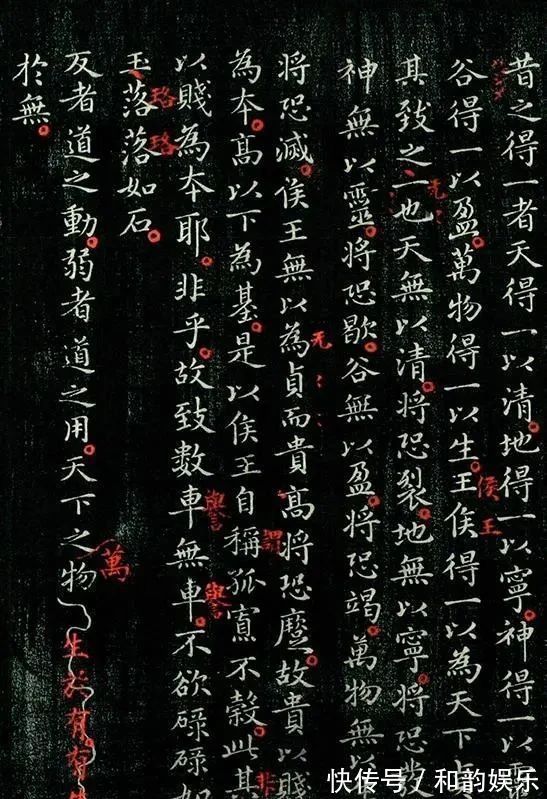 昔之得一者天得一以清地得一以寧神得一以靈
谷得一以盈萬物得一以生王侯得一以為天下貞
侯王
其致之一也天無以清將恐裂地無以寧將恐發
无
神無以靈將恐歇谷無以盈將恐竭萬物無以
將恐滅侯王無以為貞而貴高將恐故貴以賤
无
為本高以下為基是以侯王自稱孤寡不穀此其
謂
非
以賤為本耶非乎故致數車無車不欲碌碌如
譽譽
玉落落如石
珞珞
反者道之動弱者道之用天下之物生於有有生
萬
於無
快传号 / 和韵娱乐